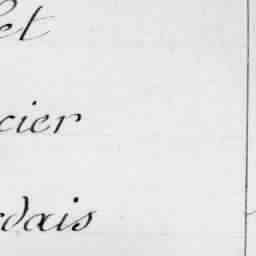 et
cier
dais